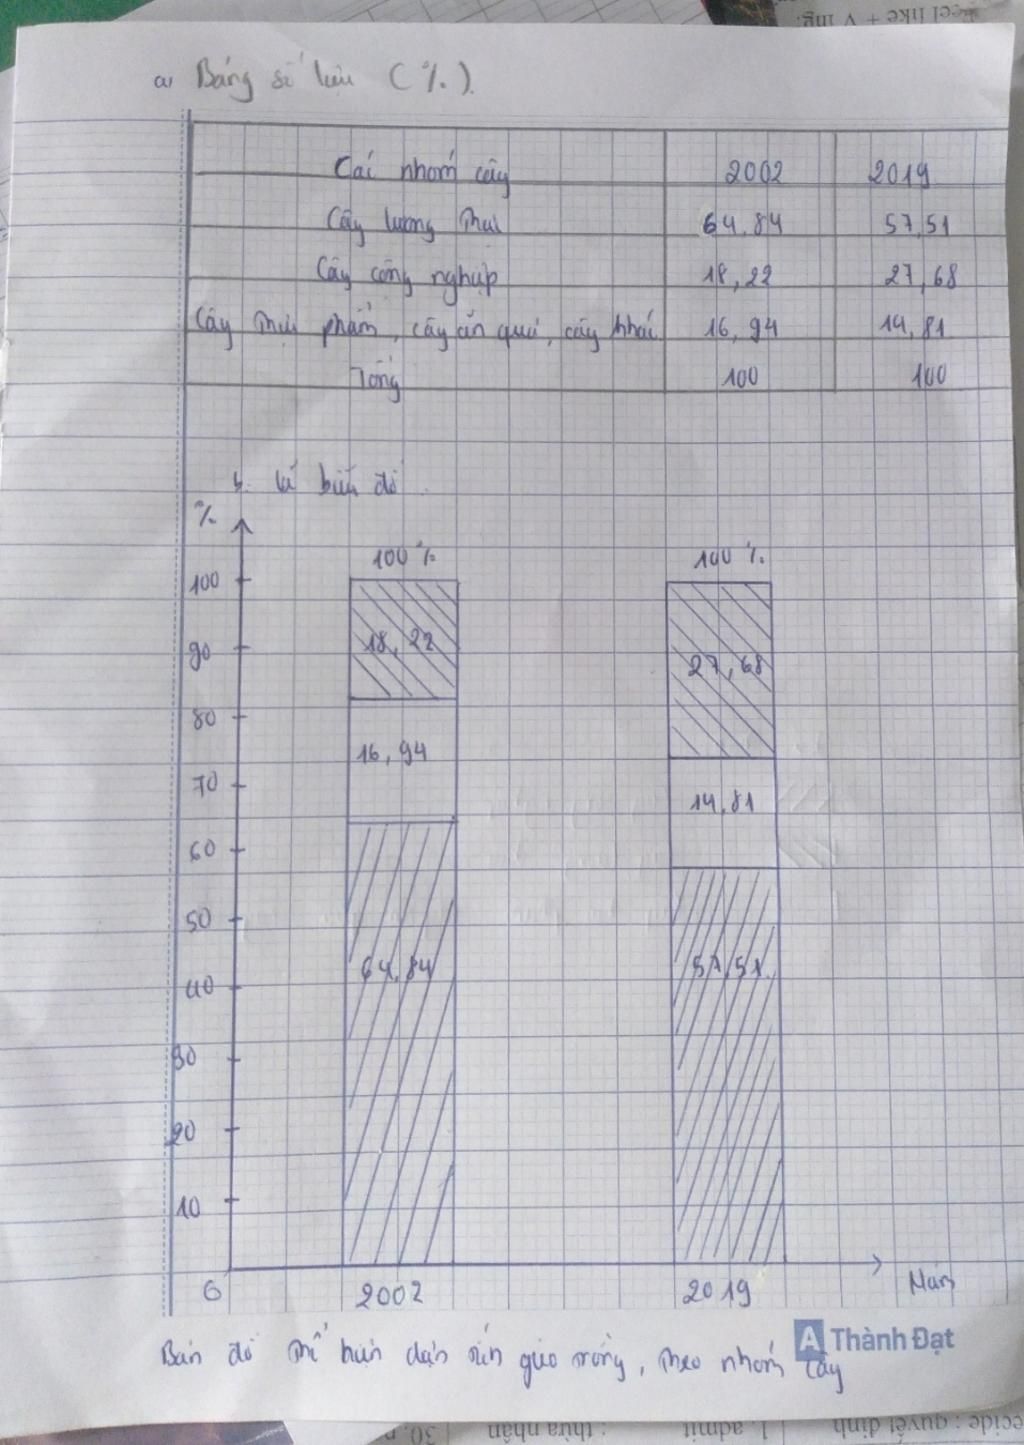 a, Bảng số liệu (%).
Các nhóm cây 2002 2019
Cây lương thực 64,84 57,51
Cây công nghiệp 18,22 27,68
Cây thực phẩm, cây ăn quả, cây khác 16,94 14,81
Tổng 100 100
b. Vẽ biểu đồ
%
100% 100%
100
18,22 27,68
90
80
16,94
70
14,81
60
50
64,84 57,51
40
30
20
10
0 2002 2019 Năm
A Thành Đạt
gieo trồng, theo nhóm cây